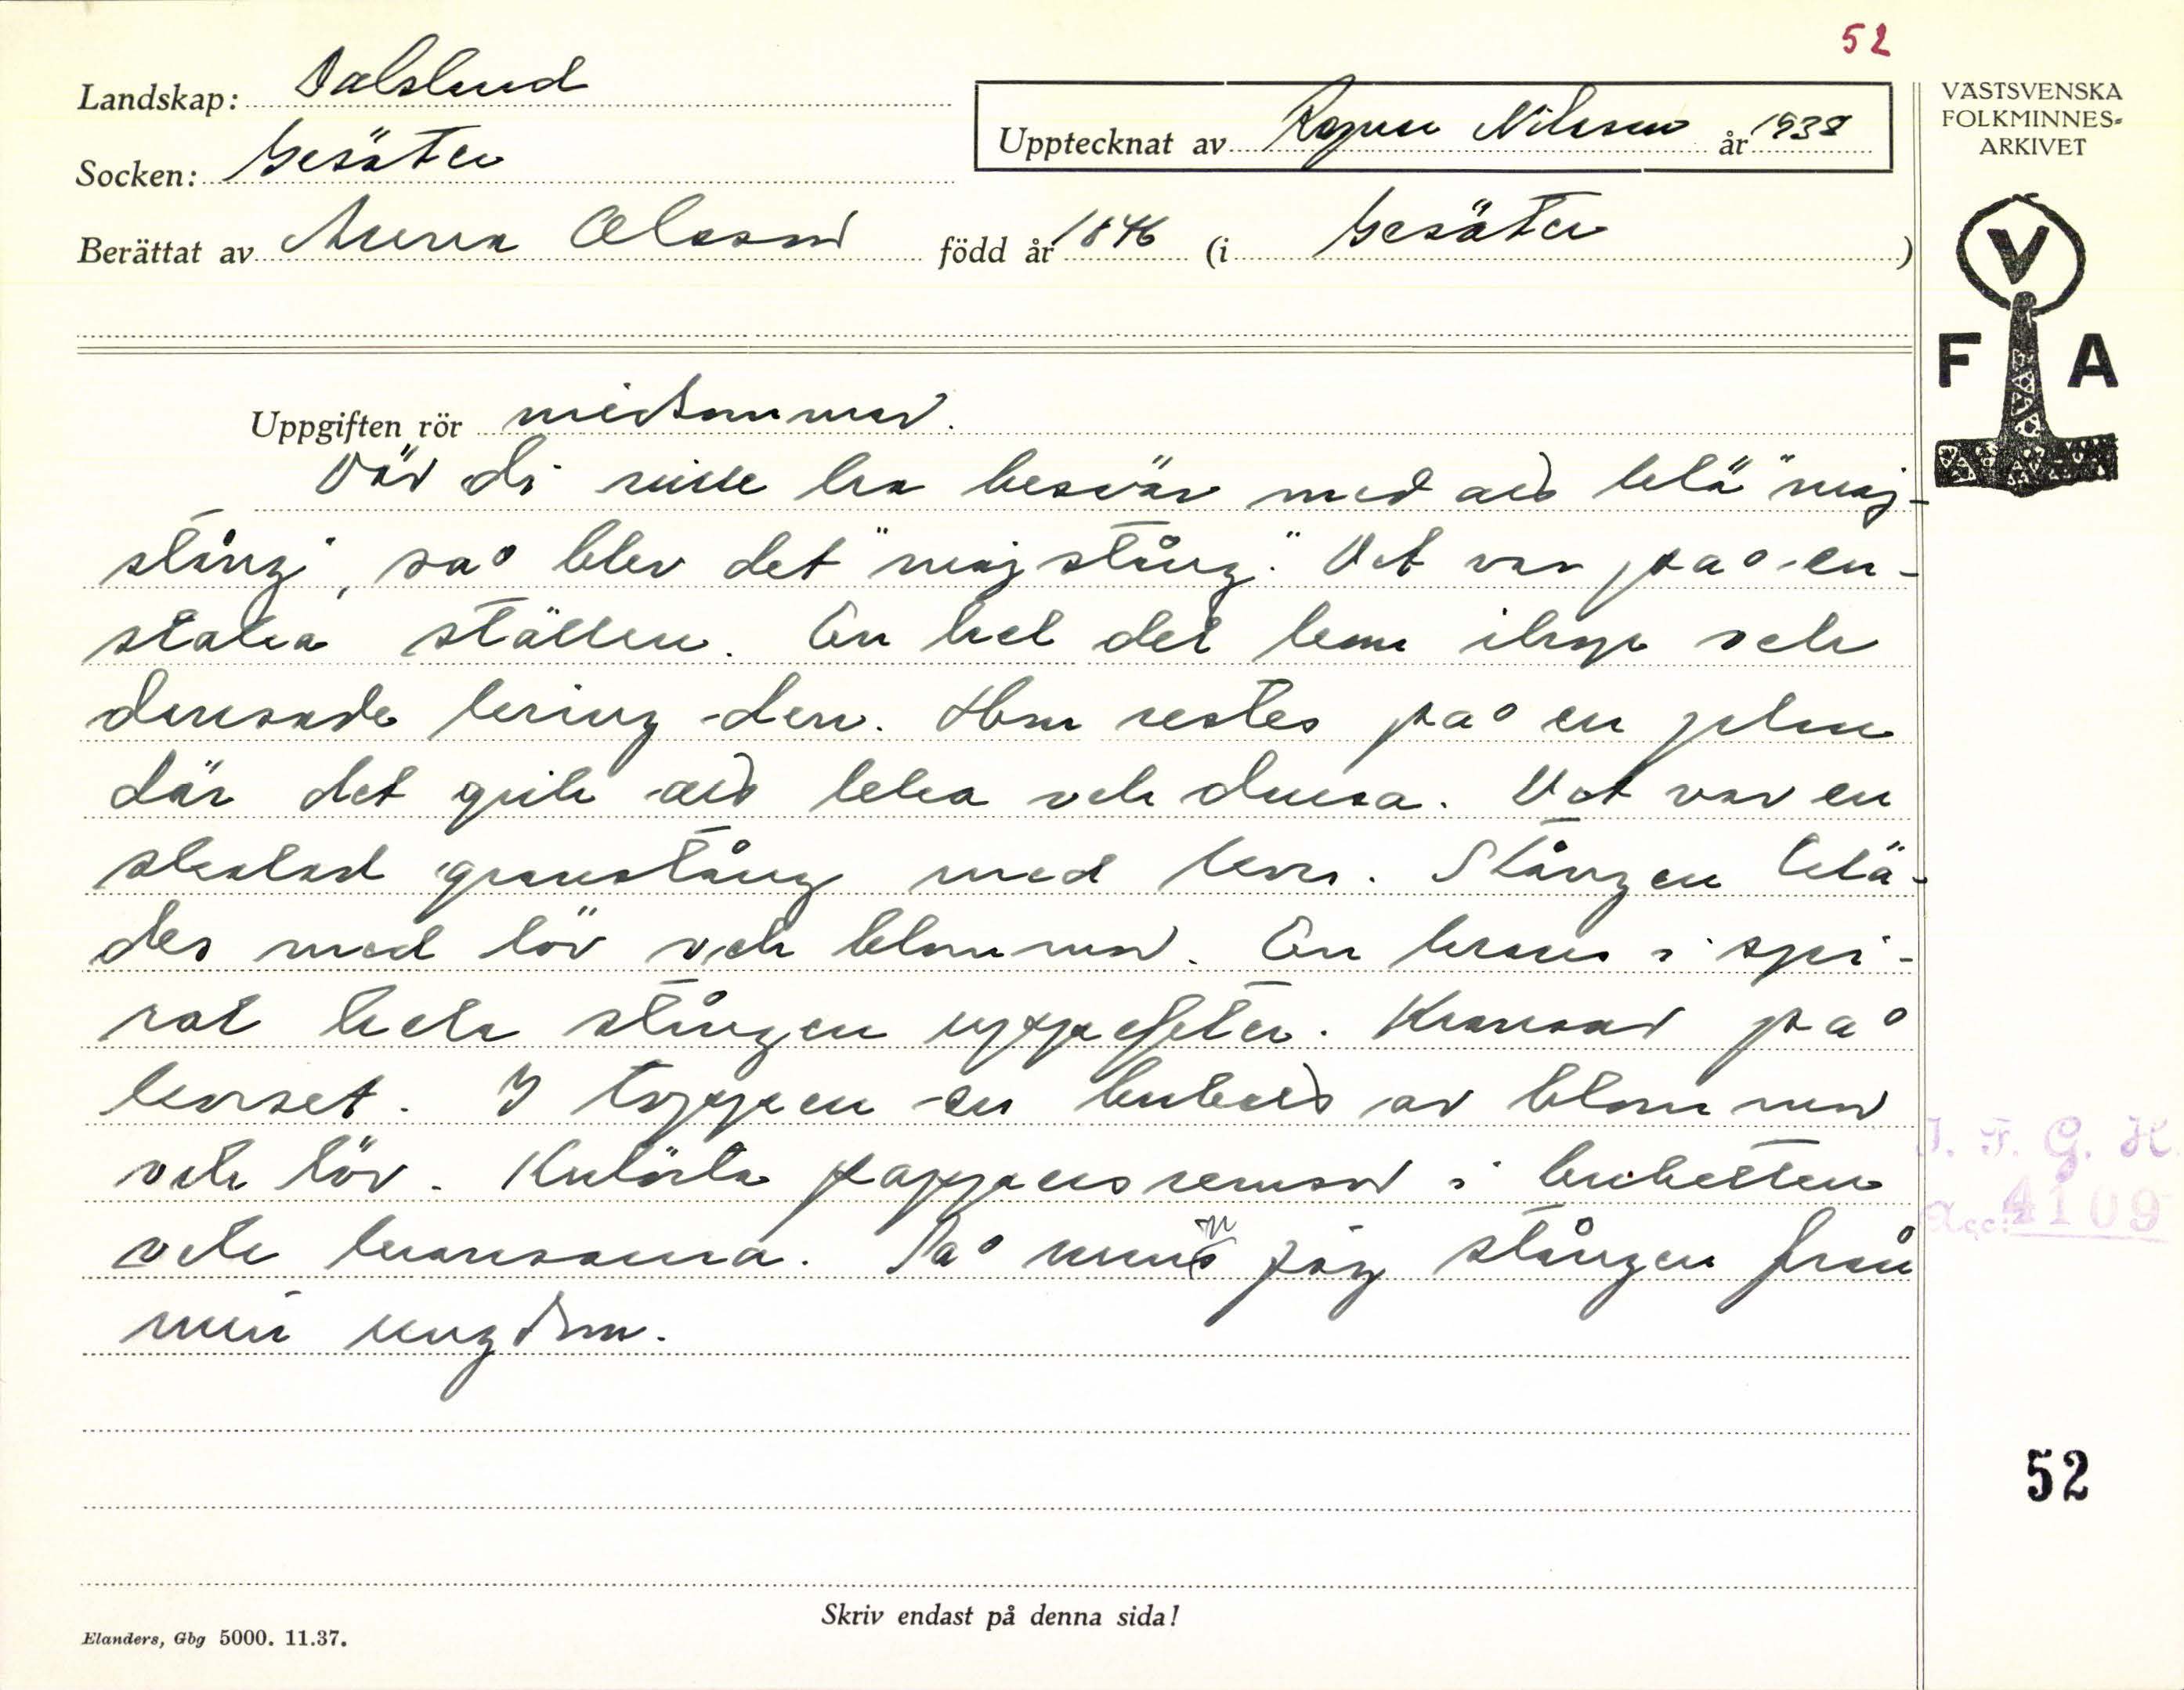 52
Landskap: Dalsland
Upptecknat av Ragnar Nilsson år 1938
Socken: Gesäter
Berättat av Anna Olsson född år 1846 (i Gesäter)
VÄSTSVENSKA
FOLKMINNES-
ARKIVET
V
F A
Uppgiften rör midsommar.
Där di ville ha besvär med att klä "maj-
stång", så blev det "majstång". Det var på en-
staka ställen. En hel del kom ihop och
dansade kring den. Hon restes på en plan
där det gick att leka och dansa. Det var en
skalad granstång med kors. Stången klä-
des med löv och blommor. En krans i spi-
ral hela stången uppefter. Kransar på
korset. I toppen en bukett av blommor
och löv. Kulörta pappersremsor i buketten
och kransarna. Så minns jag stången från
min ungdom.
I. F. G. H.
Acc: 4109
52
Skriv endast på denna sida!
Elanders, Gbg 5000. 11.37.